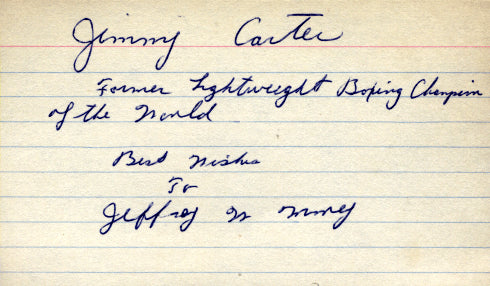 Jimmy Carter
Former Lightweight Boxing Champion
of the World
Best Wishes
To
Jeffrey W